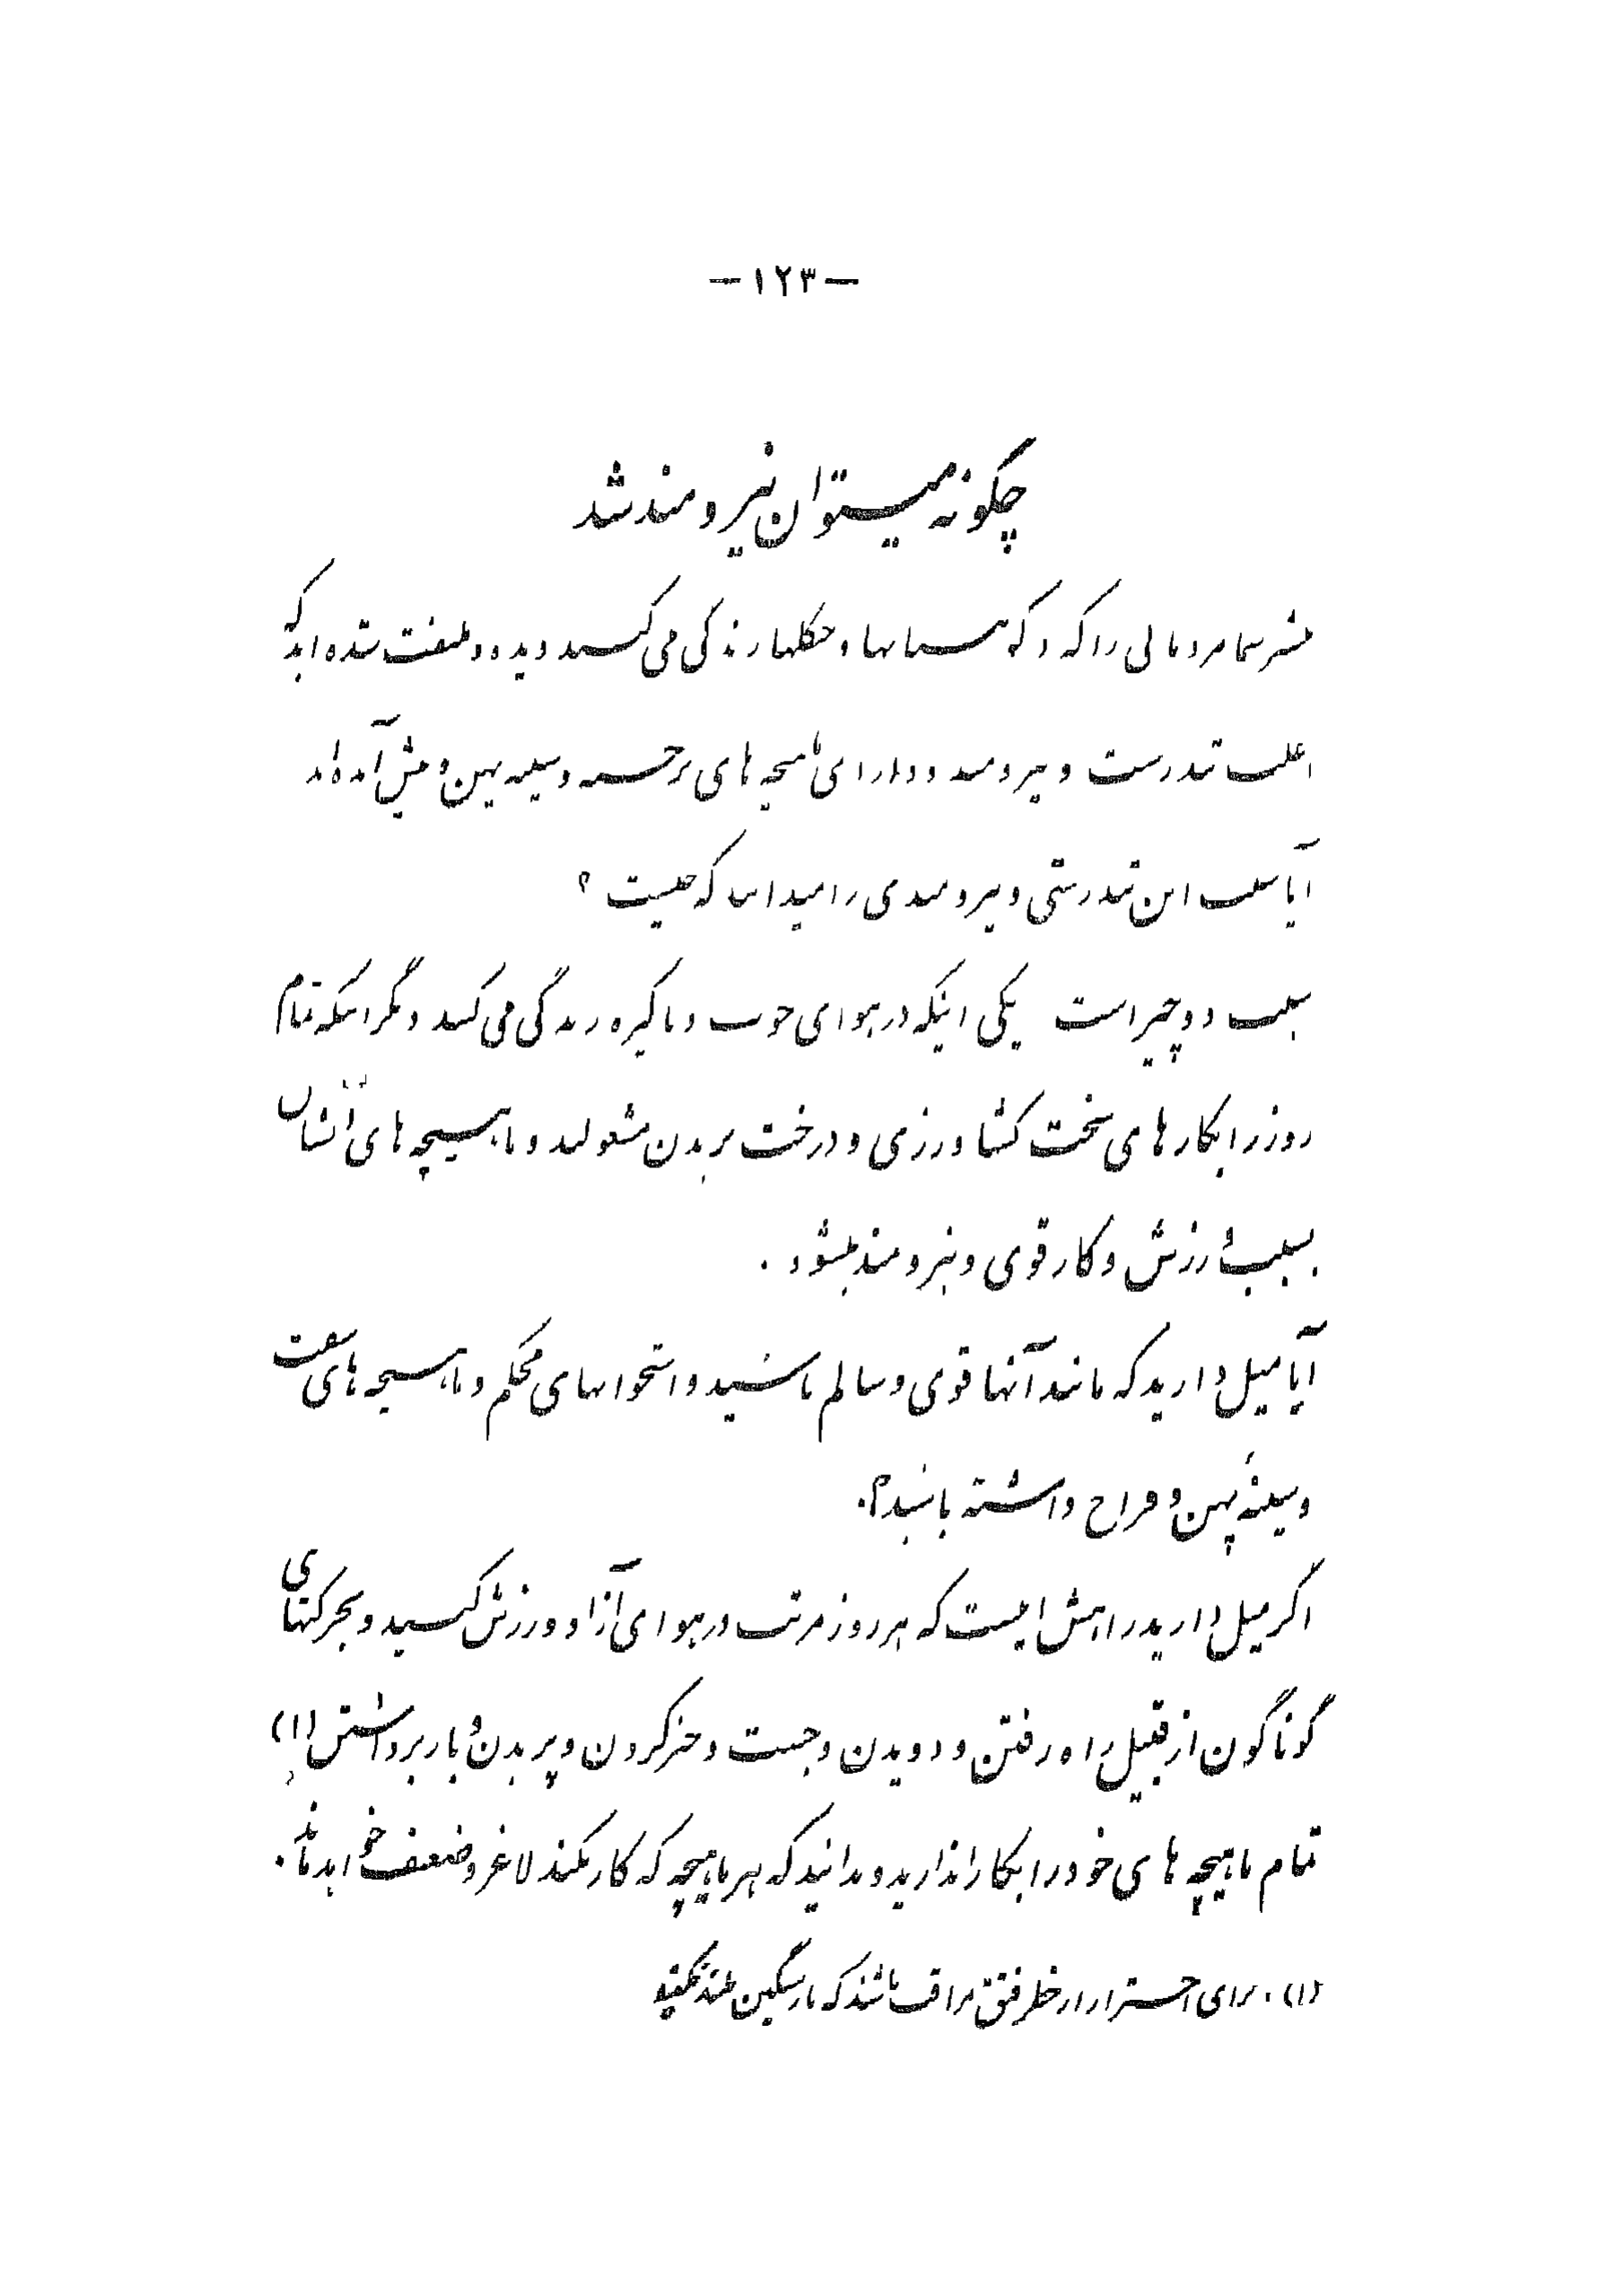 -۱۲۳-
چگونه میتوان نیرومند شد
بیشتر شما مردمانی را که در کوهستانها و جنگلها زندگی می کنند دیده و ملتفت شده اید که
اغلب تندرست و نیرومند و دارای ماهیچه های برجسته و سینه پهن و پیش آمده اند
آیا سبب این تندرستی و نیرومندی را میدانید که چیست ؟
سبب دو چیز است یکی اینکه در هوای خوب و پاکیزه زندگی می کنند دیگر اینکه تمام
روز را بکارهای سخت کشاورزی و درخت بریدن مشغولند و ماهیچه های ایشان
بسبب ورزش و کار قوی و نیرومند میشود .
آیا میل دارید که مانند آنها قوی و سالم باشید و استخوانهای محکم و ماهیچه های سفت
و سینه پهن و فراخ داشته باشید؟.
اگر میل دارید راهش اینست که هر روز مرتب در هوای آزاد ورزش کنید و بحرکتهای
گوناگون از قبیل راه رفتن و دویدن و جست و خیز کردن و پریدن و بار برداشتن (۱)
تمام ماهیچه های خود را بکار اندازید و بدانید که هر ماهیچه که کار نکند لاغر و ضعیف خواهد ماند.
(۱). برای احتراز از خطر فتق مراقب باشند که بار سنگین بلند نکنند